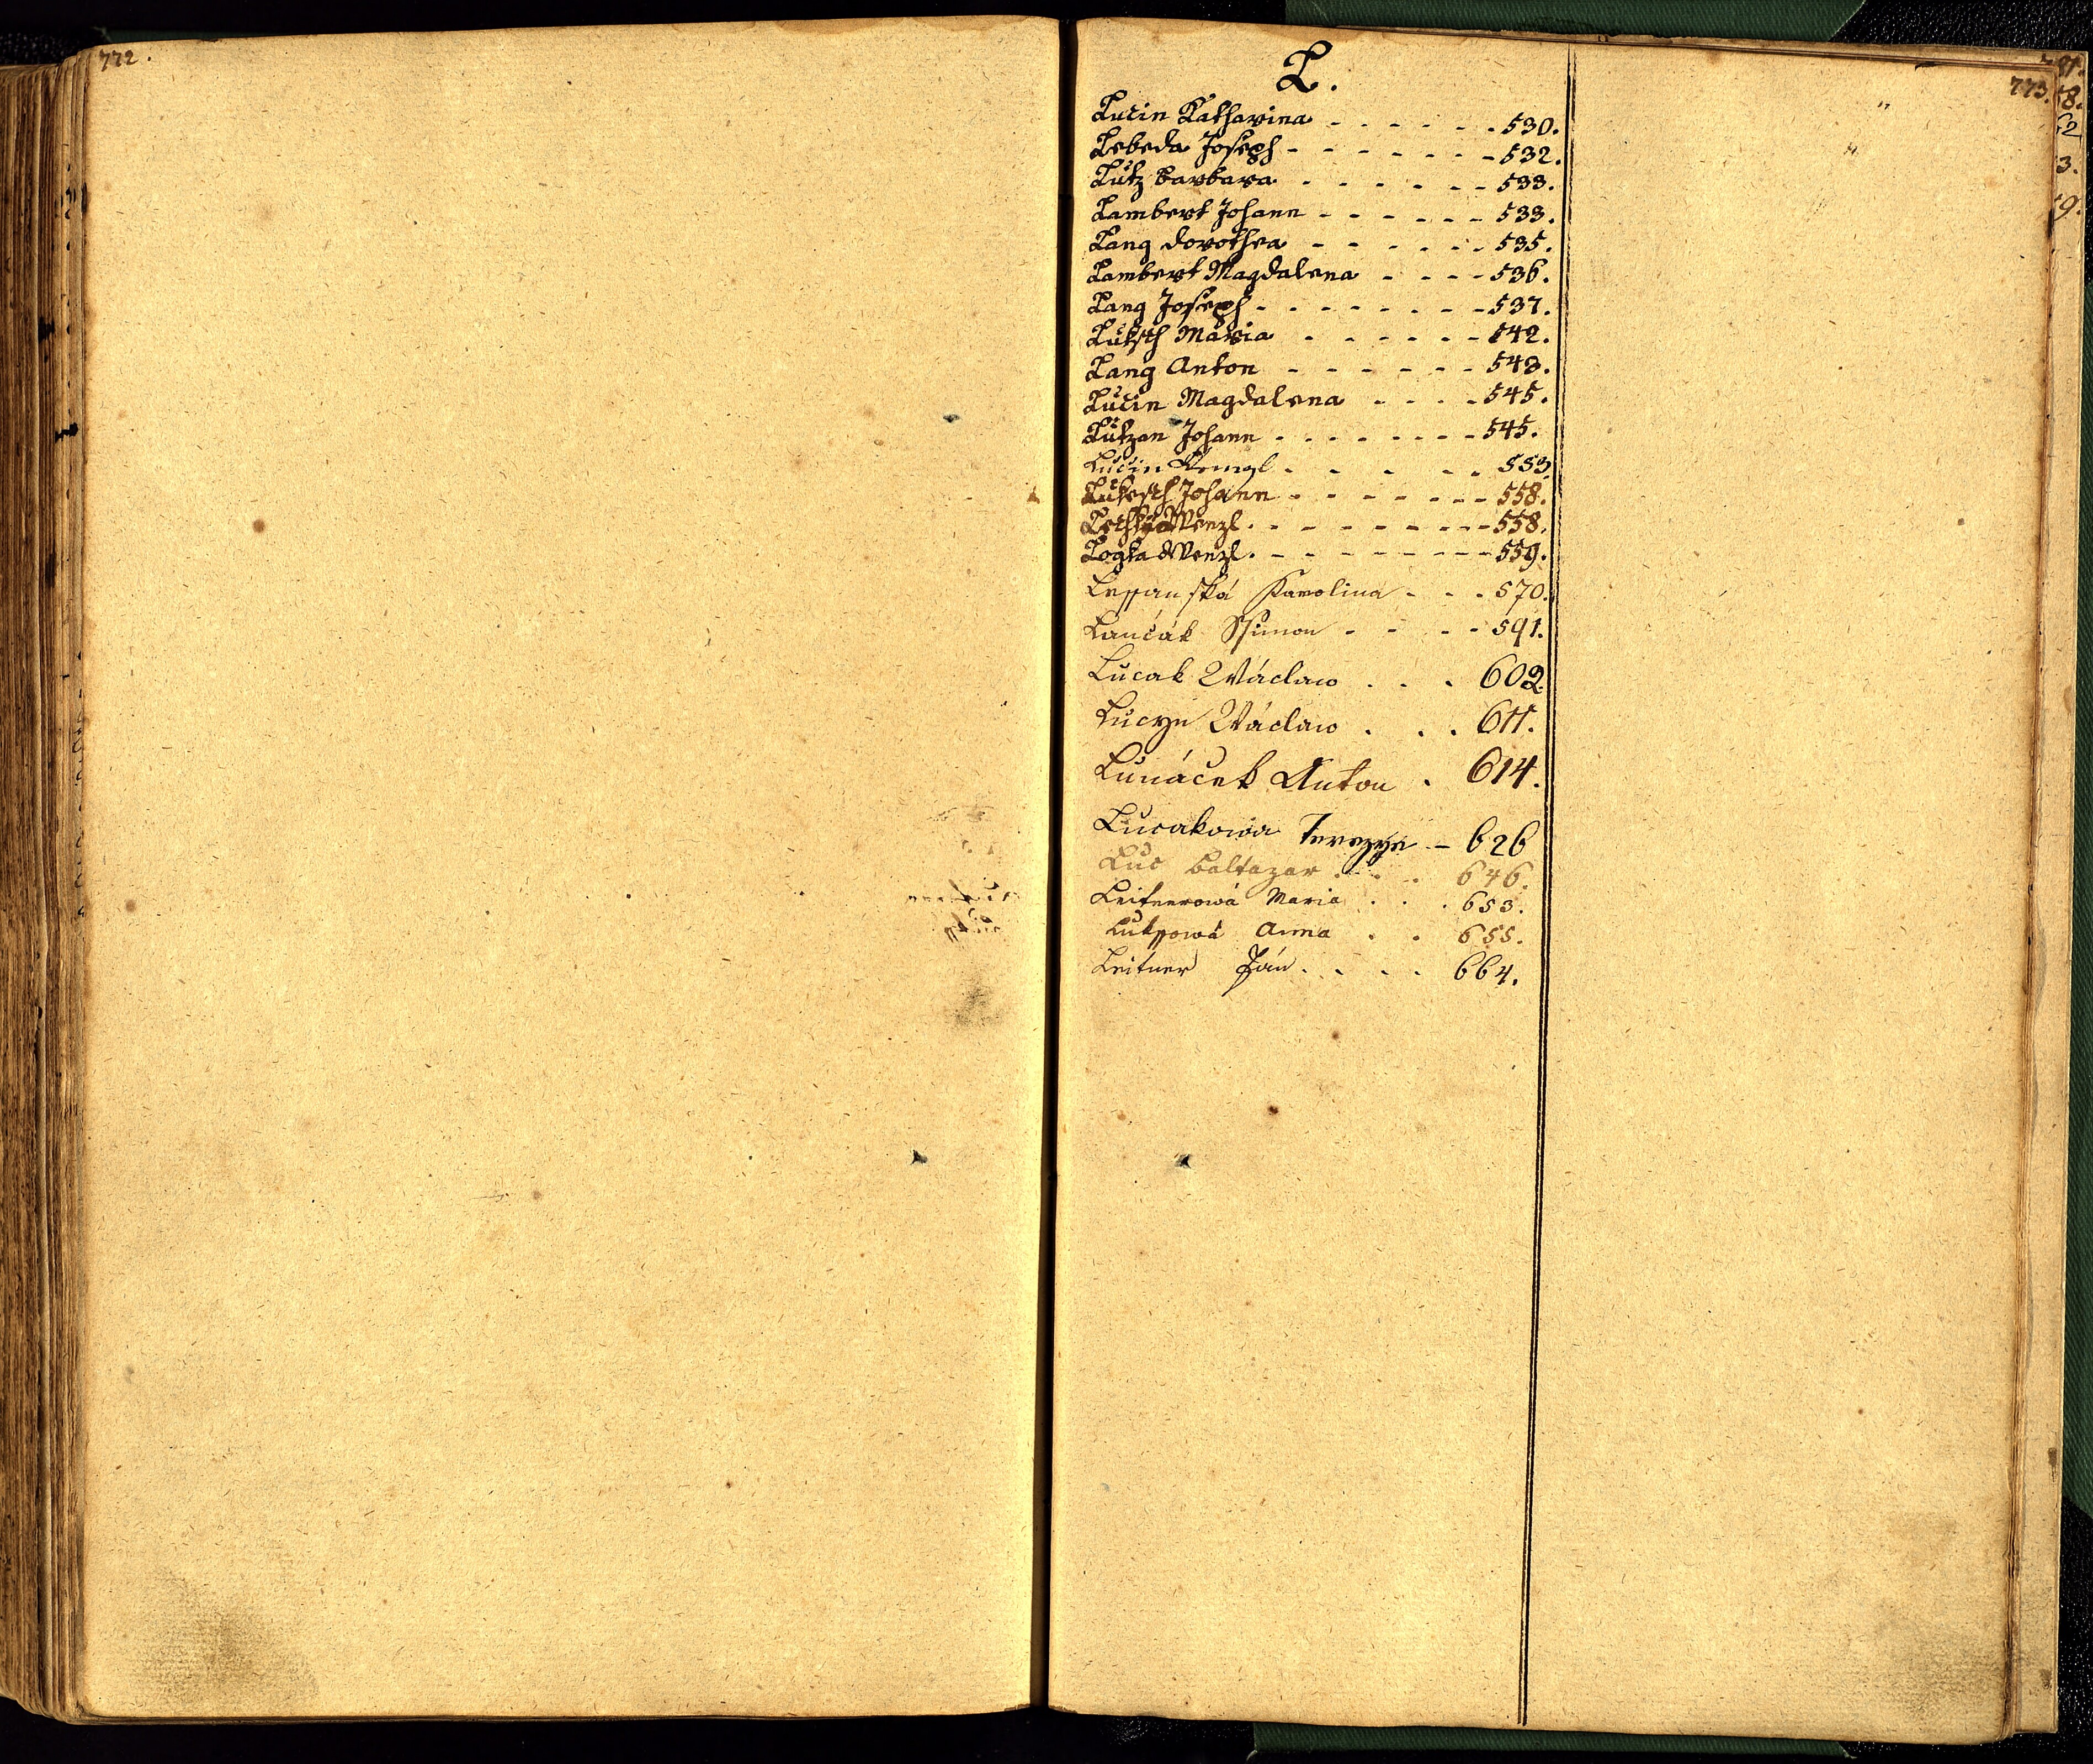 772.
773.
L.
Lučin Katharina - - - - - - 530.
Lebeda Joseph - - - - - - - 532.
Lutz Barbara - - - - - - 533.
Lambert Johann - - - - - - 533.
Lang Dorothea - - - - - - 535.
Lambert Magdalena - - - - 536.
Lang Joseph - - - - - - - - 537.
Luksch Maria - - - - - - 542.
Lang Anton - - - - - - 543.
Lučin Magdalena - - - - 545.
Lukzan Johann - - - - - - - - 545.
Lučin Wenzl - - - - - - 553
Lukesch Johann - - - - - - - 558.
Wenzl - - - - - - - - - 558.
Logka Wenzl - - - - - - - - - 559.
Lessanská Karolina - - - 570.
Lančák Ssimon - - - - 591.
Lucak Wáclaw . . . 602
Lucyn Wáclaw . . . 611.
Lunáček Anton . 614.
Lucakowa Terezye - 626
Luc Baltazar . . . . 646.
Leitnerowá Maria . . . 653.
Lukssowá Anna . . 655.
Leitner Ján . . . . 664.